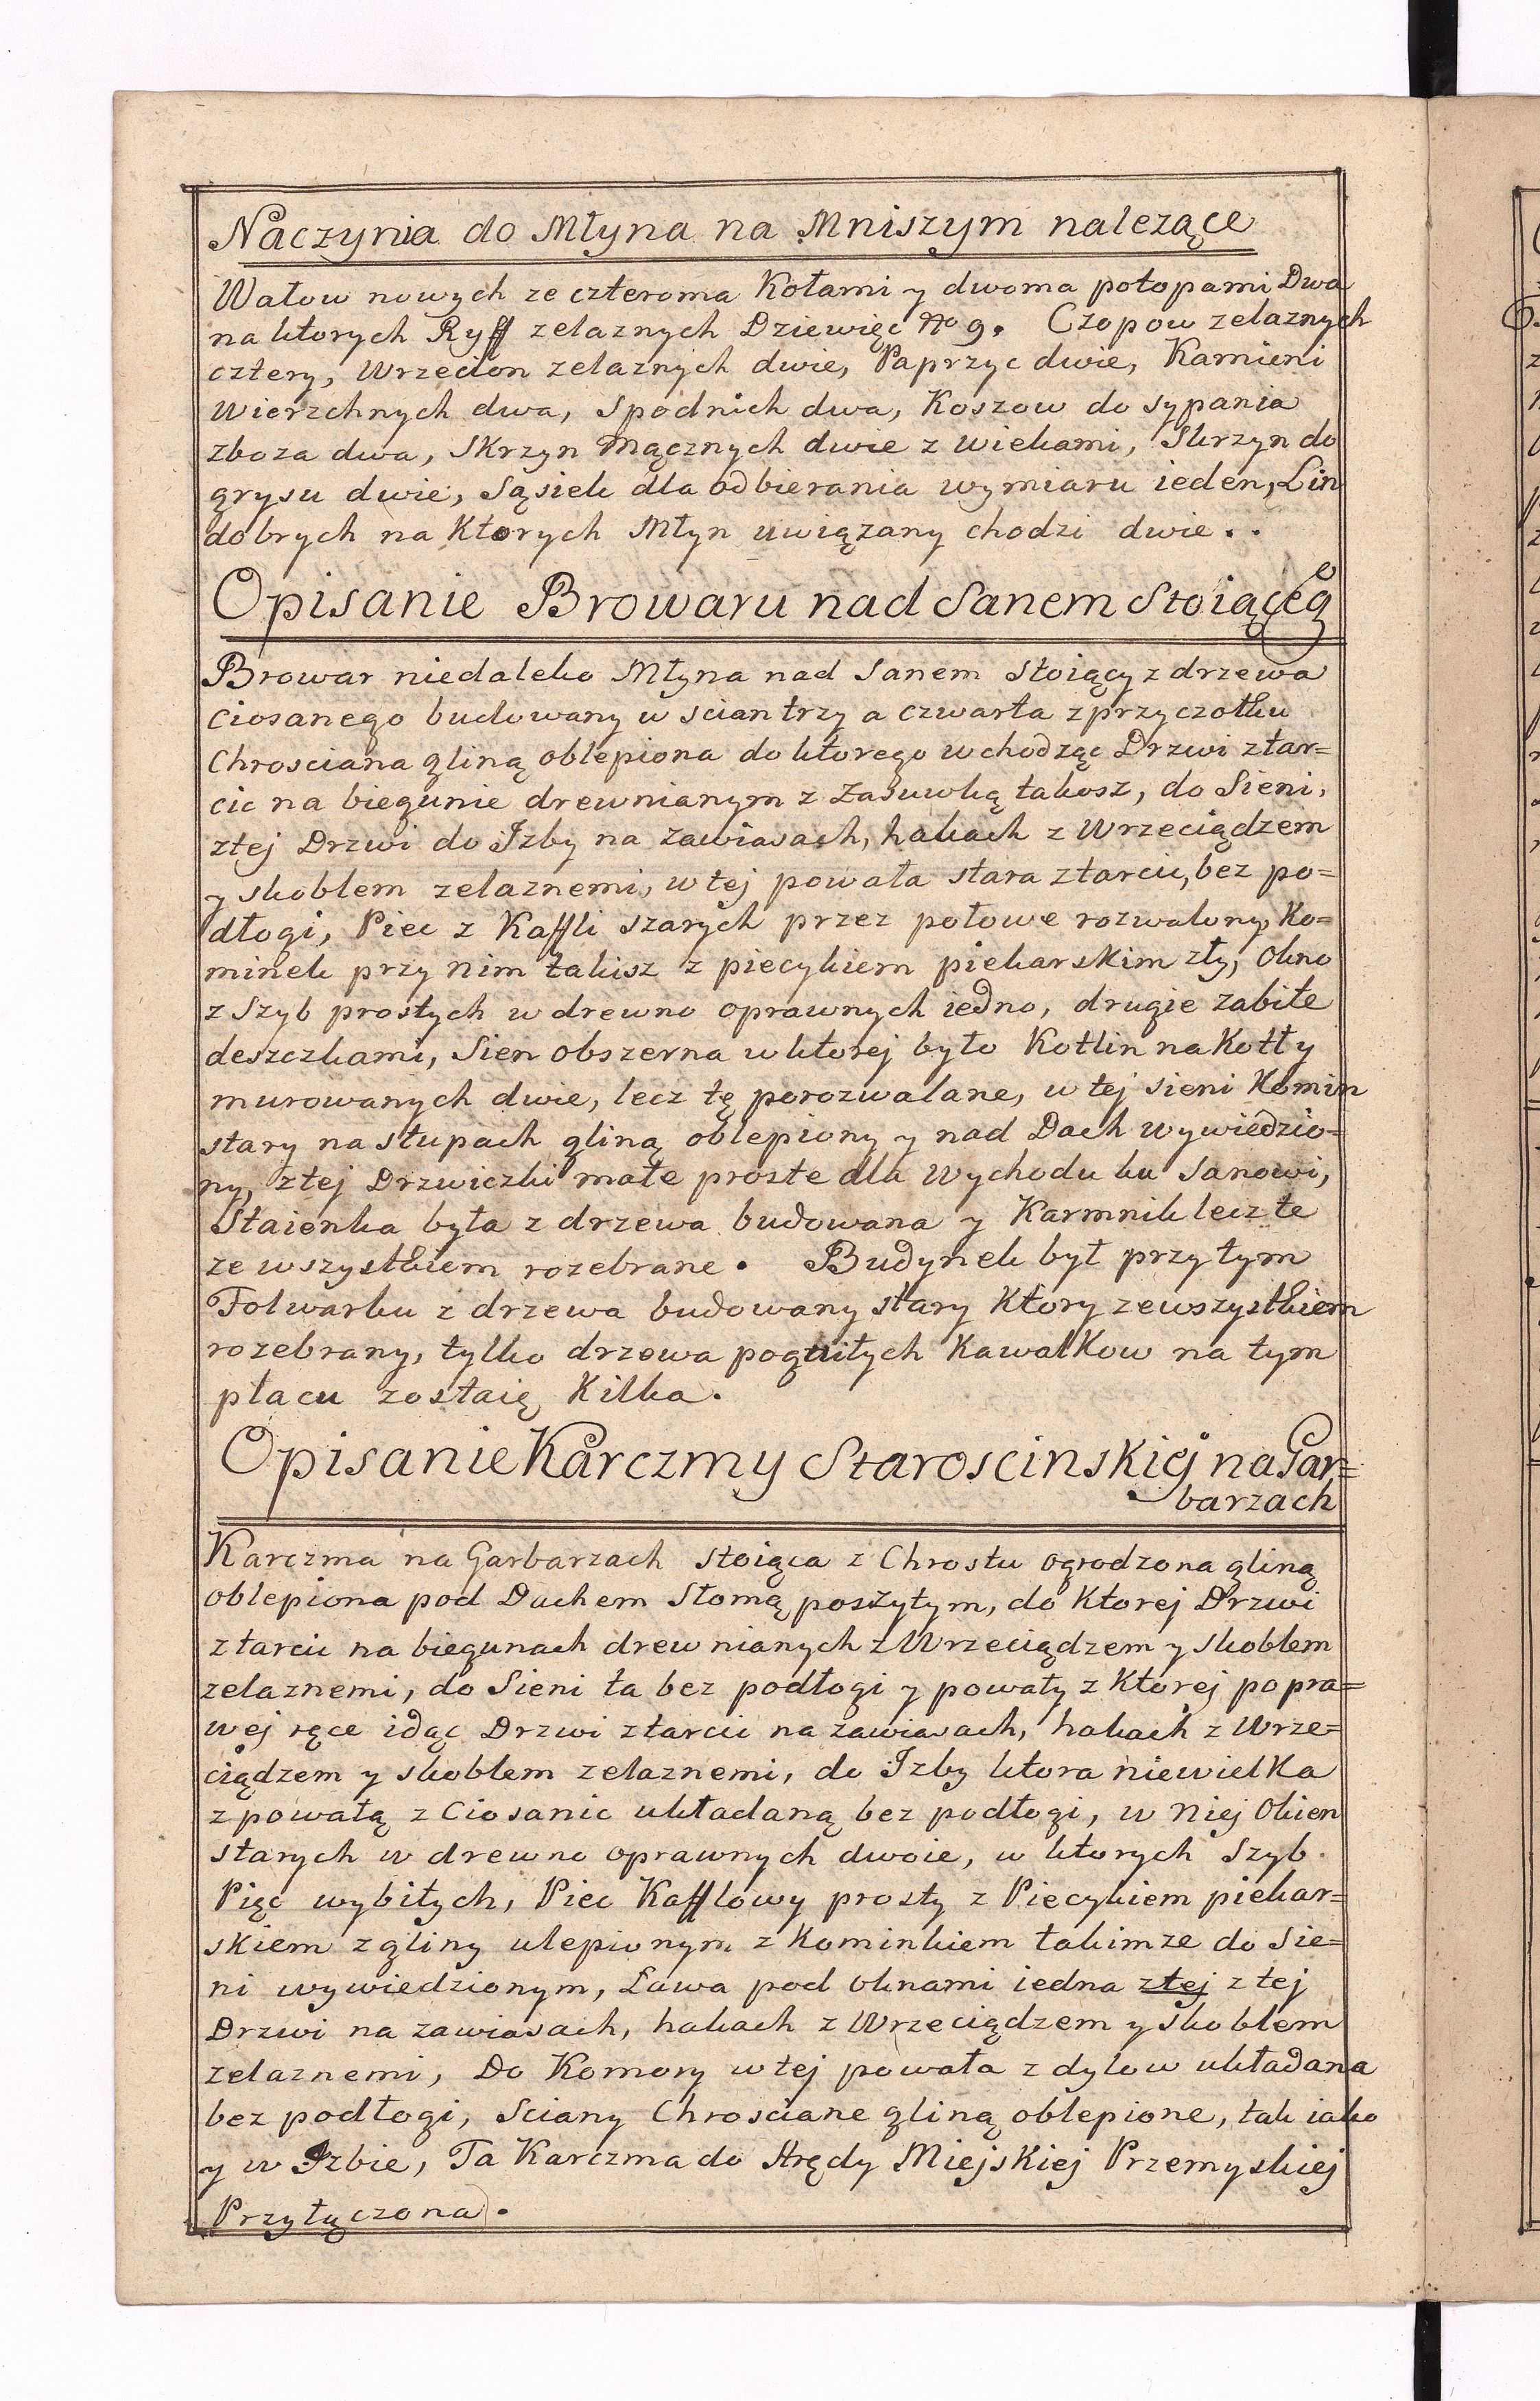 Naczynia do Młyna na Mniszym nalezące
Wałow nowych ze czteroma Kołami y dwoma połopami Dwa
na ktorych Ryff zelaznych Dziewięc No 9. Czopow zelaznych
cztery, Wrzecion zelaznych dwie, Paprzyc dwie, Kamieni
Wierzchnych dwa, Spodnich dwa, Koszow do sypania
zboza dwa, Skrzyn Mącznych dwie z wiekami, Skrzyn do
grysu dwie, Sąsiek dla odbierania wymiaru ieden, Lin
dobrych na Ktorych Młyn uwiązany chodzi dwie..
Opisanie Browaru nad Sanem Stoiącego
Browar niedaleko Młyna nad Sanem Stoiący z drzewa
Ciosanego budowany w scian trzy a czwarta z przyczołku
Chrosciana gliną oblepiona do ktorego wchodząc Drzwi z tar=
cic na biegunie drewnianym z Zasuwką takosz, do Sieni,
z tej Drzwi do Izby na zawiasach, hakach z Wrzeciądzem
y skoblem zelaznemi, w tej powała stara z tarcic, bez po=
dłogi, Piec z Kaffli szarych przez połowe rozwalony, Ko=
minek przy nim takisz z piecykiem piekarskim zły, Okno
z Szyb prostych w drewno oprawnych iedno, drugie zabite
deszczkami, Sien obszerna w ktorej było Kotlin na Kotły
murowanych dwie, lecz tę porozwalane, w tej sieni Komin
stary na słupach gliną oblepiony y nad Dach wywiedzio=
ny, z tej Drzwiczki małe proste dla Wychodu ku Sanowi,
Staienka była z drzewa budowana y Karmnik lecz te
ze wszystkiem rozebrane. Budynek był przy tym
Folwarku z drzewa budowany stary Ktory zewszystkiem
rozebrany, tylko drzewa pogniłych Kawałkow na tym
płacu zostaię Kilka.
Opisanie Karczmy Staroscinskiej na Gar=
barzach
Karczma na Garbarzach stoiąca z Chrostu ogrodzona gliną
oblepiona pod Dachem Słomą poszytym, do Ktorej Drzwi
z tarcic na biegunach drewnianych z Wrzeciądzem y skoblem
zelaznemi, do Sieni ta bez podłogi y powały z Ktorej po pra=
wej ręce idąc Drzwi z tarcic na zawiasach, hakach z Wrze=
ciądzem y skoblem zelaznemi, do Izby ktora niewielKa
z powałą z Ciosanic układaną bez podłogi, w Niej Okien
starych w drewno oprawnych dwoie, w ktorych Szyb
Pięc wybitych, Piec Kafflowy prosty z Piecykiem piekar=
skiem z gliny ulepionym z Kominkiem takimze do Sie=
ni wywiedzionym, Ława pod oknami iedna z tej z tej
Drzwi na zawiasach, hakach z Wrzeciądzem y skoblem
zelaznemi, Do Komory w tej powała z dylow układana
bez podłogi, Sciany Chrosciane gliną oblepione, tak iako
y w Izbie, Ta Karczma do Aredy Miejskiej Przemyskiej
Przyłączona.